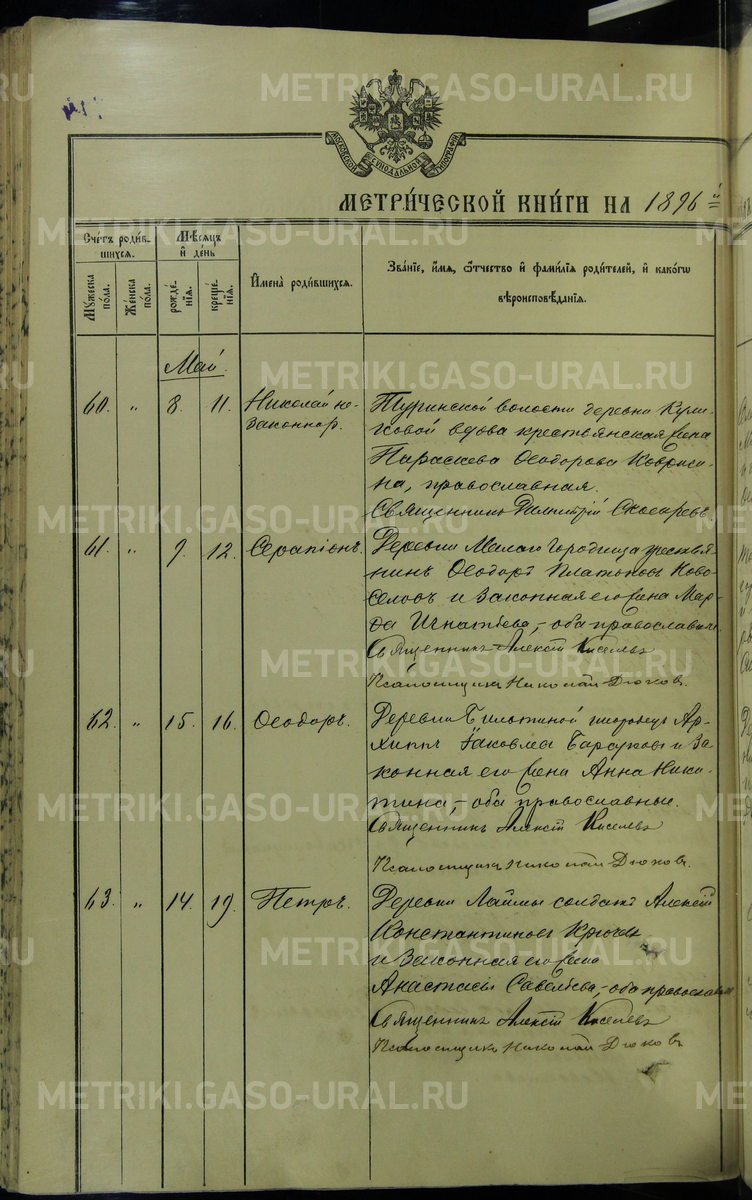 МОСКОВСКОЙ СѴНОДАЛЬНОЙ ТИПОГРАФІИ
МЕТРИ́ЧЕСКОЙ КНИ́ГИ НА 1896 й
Сче́тъ роди́в-
шихся.
Мѣ́сяцъ
и҆ де́нь
Мꙋ́жеска по́ла.
Же́нска по́ла.
рожде́-
нїѧ.
креще́-
нїѧ.
И҆мена̀ роди́вшихсѧ.
Зва́нїе, и҆́мѧ, ѻ҆́тчество и҆ фами́лїѧ роди́телей, и҆ како́гѡ
вѣроисповѣ́данїѧ.
Май.
60. „ 8. 11. Николай не-
законнор.
Туринской волости деревни Кули-
ковой вдова крестьянская жена
Параскева Ѳеодорова
на, православная.
Священникъ Димитрій
61. „ 9. 12. Серапіонъ.
Деревни Малаго Городища крестья-
нинъ Ѳеодоръ Платоновъ Ново-
селовъ и законная его жена Мар-
ѳа Игнатьева, - оба православные
Священникъ Алексій Киселевъ
Псаломщикъ Николай Дюковъ.
62. „ 15. 16. Ѳеодоръ.
Деревни инородецъ Ар-
хиппъ Іаковлевъ Барсуковъ и за-
конная его жена Анна Ники-
тина, - оба православные.
Священникъ Алексій Киселевъ
Псаломщикъ Николай Дюковъ.
63. „ 14. 19. Петръ.
Деревни Лаймы солдатъ Алексій
Константиновъ
и законная его жена
Анастасія Савельева, - оба православные
Священникъ Алексій Киселевъ
Псаломщикъ Николай Дюковъ
METRIKI.GASO-URAL.RU